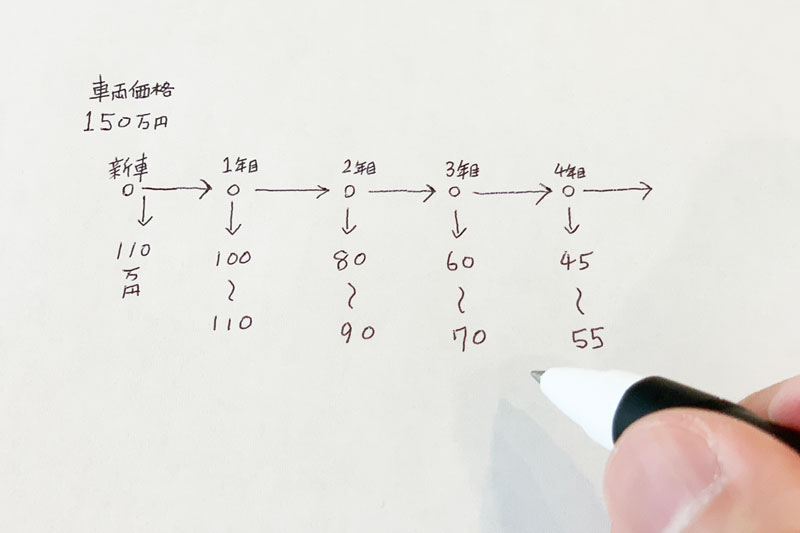 車両価格
150万円
新車 1年目 2年目 3年目 4年目
110万円 100〜110 80〜90 60〜70 45〜55